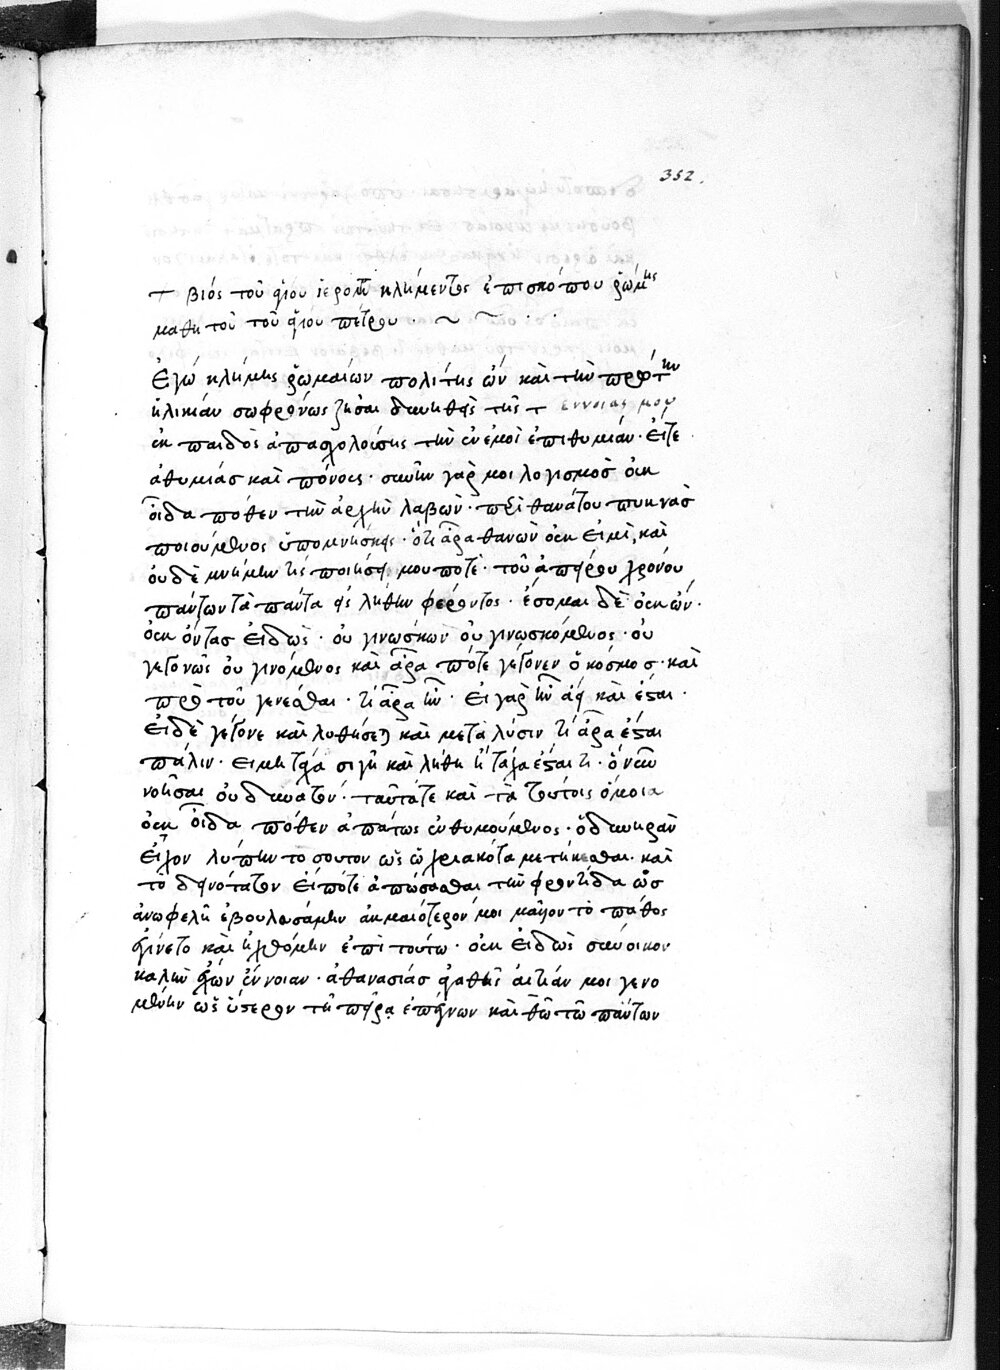 352.
+ βιός τοῦ ἁγίου ἱερομ κλήμεντος ἐπισκόπου ῥώμης
μαθητοῦ τοῦ ἁγίου πέτρου.
Ἐγώ κλήμης ῥωμαίων πολίτης ὢν καὶ τὴν πρώτην
ἡλικίαν σωφρόνως ζῆσαι δυνηθεὶς τῆς + ἐννοίας μου
ἐκ παιδὸς ἀπασχολούσης τὴν ἐν ἐμοὶ ἐπιθυμίαν· εἴτε
ἀθυμίας καὶ πόνους· συνῆν γάρ μοι λογισμὸς οὐκ
οἶδα πόθεν τὴν ἀρχὴν λαβὼν· περὶ θανάτου πυκνὰς
ποιούμενος ὑπομνήσεις· ὅτι ἆρα θανὼν οὐκ εἰμὶ, καὶ
οὐδὲ μνήμην τίς ποιήσει μου ποτὲ· τοῦ ἀπείρου χρόνου
πάντων τὰ πάντα εἰς λήθην φέροντος· ἔσομαι δὲ οὐκ ὤν·
οὐκ ὄντας εἰδὼς· οὐ γινώσκων οὐ γινωσκόμενος· οὐ
γεγονὼς οὐ γινόμενος καὶ ἆρα πότε γέγονεν ὁ κόσμος· καὶ
πρὸ τοῦ γενέσθαι· τί ἆρα ἦν· εἰ γὰρ ἦν ἀεὶ καὶ ἔσται·
εἰ δὲ γέγονε καὶ λυθήσεται καὶ μετὰ λύσιν τί ἆρα ἔσται
πάλιν· εἰ μὴ τάχα σιγὴ καὶ λήθη ἢ τάχα ἔσται τι· ὃ νῦν
νοῆσαι οὐ δυνατόν· ταῦτά τε καὶ τὰ τούτοις ὅμοια
οὐκ οἶδα πόθεν ἀπαύστως ἐνθυμούμενος· ὀδυνηρὰν
εἶχον λύπην τοσοῦτον ὡς ὠχριακότα με τήκεσθαι· καὶ
τὸ δεινότατον εἴ ποτε ἀπώσασθαι τὴν φροντίδα ὡς
ἀνωφελῆ ἐβουλευσάμην ἀκμαιότερόν μοι μᾶλλον τὸ πάθος
ἐγίνετο καὶ ἠχθόμην ἐπὶ τούτω· οὐκ εἰδὼς σύνοικον
καλὴν ἔχων ἔννοιαν· ἀθανασίας ἀγαθῆς αἰτίαν μοι γενο
μένην ὡς ὕστερον τῇ πείρα ἐπέγνων καὶ θῶ τῶ πάντων